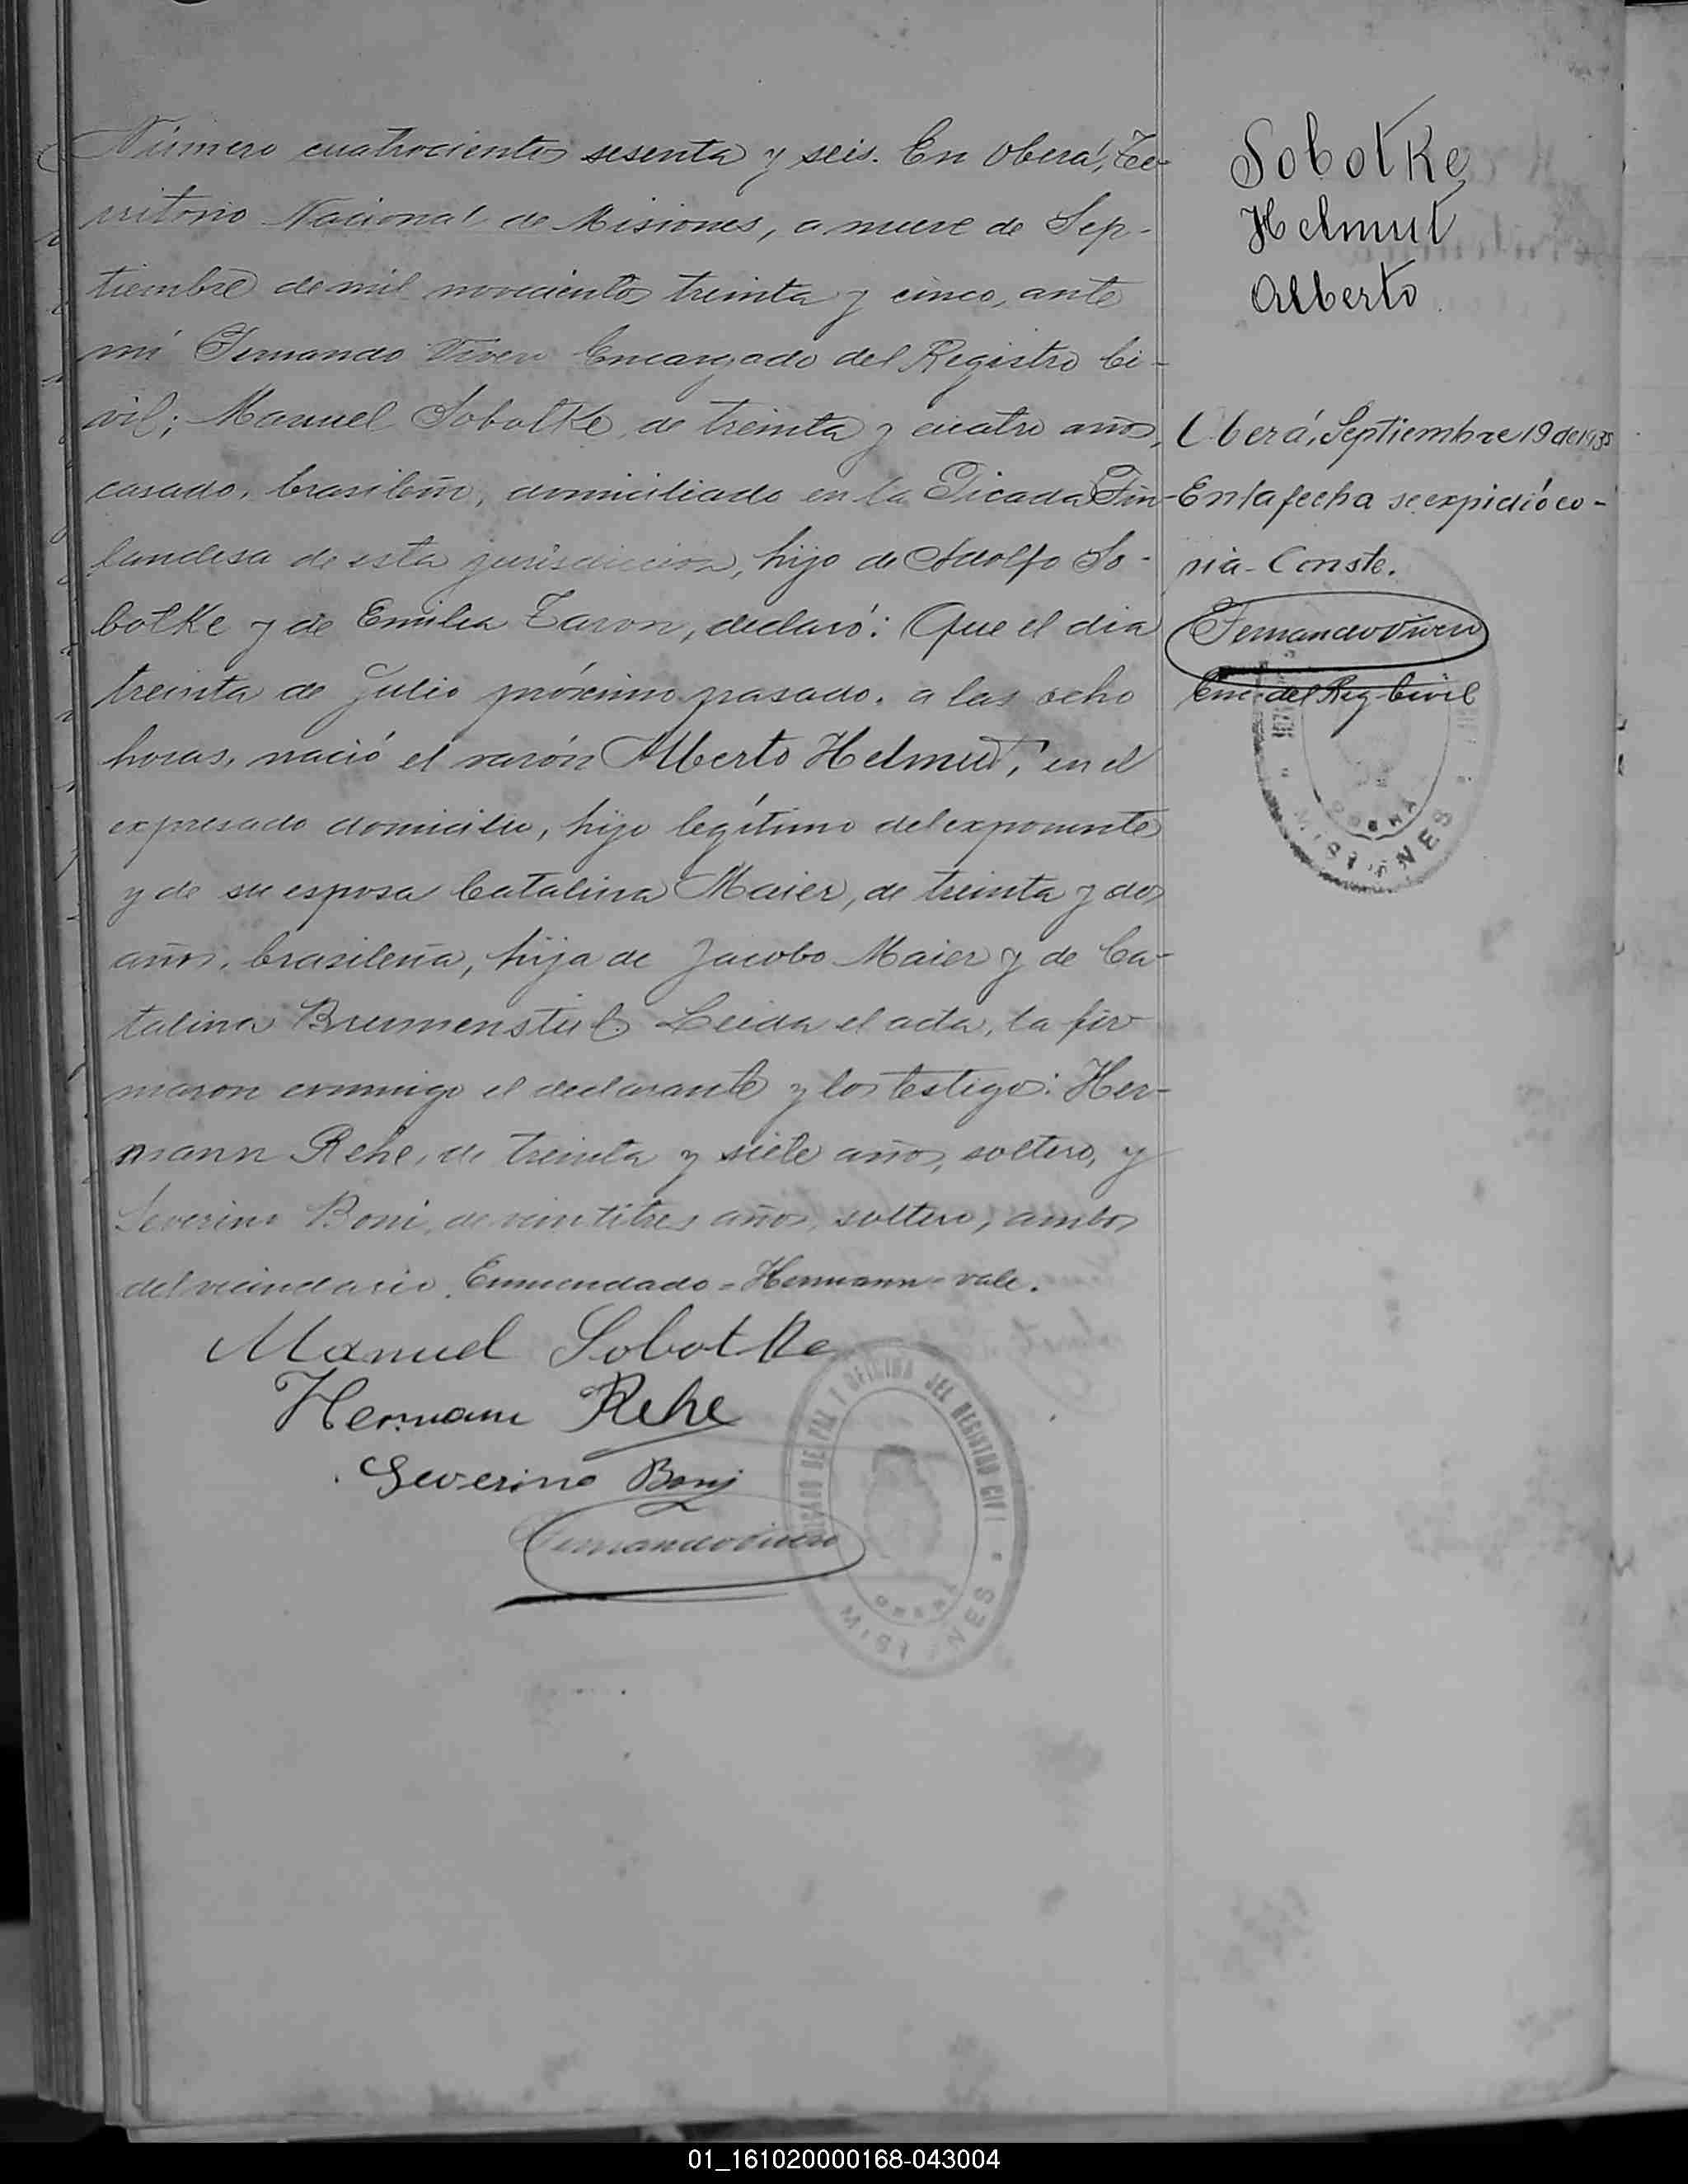 Número cuatrocientos sesenta y seis. En Oberá, Te-
rritorio Nacional de Misiones, a nueve de Sep-
tiembre de mil novecientos treinta y cinco, ante
mí Fernando Vivero Encargado del Registro Ci-
vil; Manuel Sobotke, de treinta y cuatro años,
casado, brasileño, domiciliado en la Picada Fin-
landesa de esta jurisdicción, hijo de Adolfo So-
botke y de Emilia Taron, declaró: Que el día
treinta de Julio próximo pasado, a las ocho
horas, nació el varón Alberto Helmut, en el
expresado domicilio, hijo legítimo del exponente
y de su esposa Catalina Maier, de treinta y dos
años, brasileña, hija de Jacobo Maier y de Ca-
talina Brumenstul. Leida el acta, la fir
maron conmigo el declarante y los testigos: Her-
mann Rehe, de treinta y siete años, soltero, y
Severino Boni, de veintitres años, soltero, ambos
del vecindario. Enmendado = Hermann = vale.
Manuel Sobotke
Hermann Rehe
Severino Boni
Fernando Vivero
JUZGADO DE PAZ Y OFICINA DEL REGISTRO CIVIL
OBERA
MISIONES
Sobotke
Helmut
Alberto
Oberá, Septiembre 19 de 1935
En la fecha se expidió co-
pia. Conste.
Fernando Vivero
Enc. del Reg. Civil
OBERA
MISIONES
01_161020000168-043004